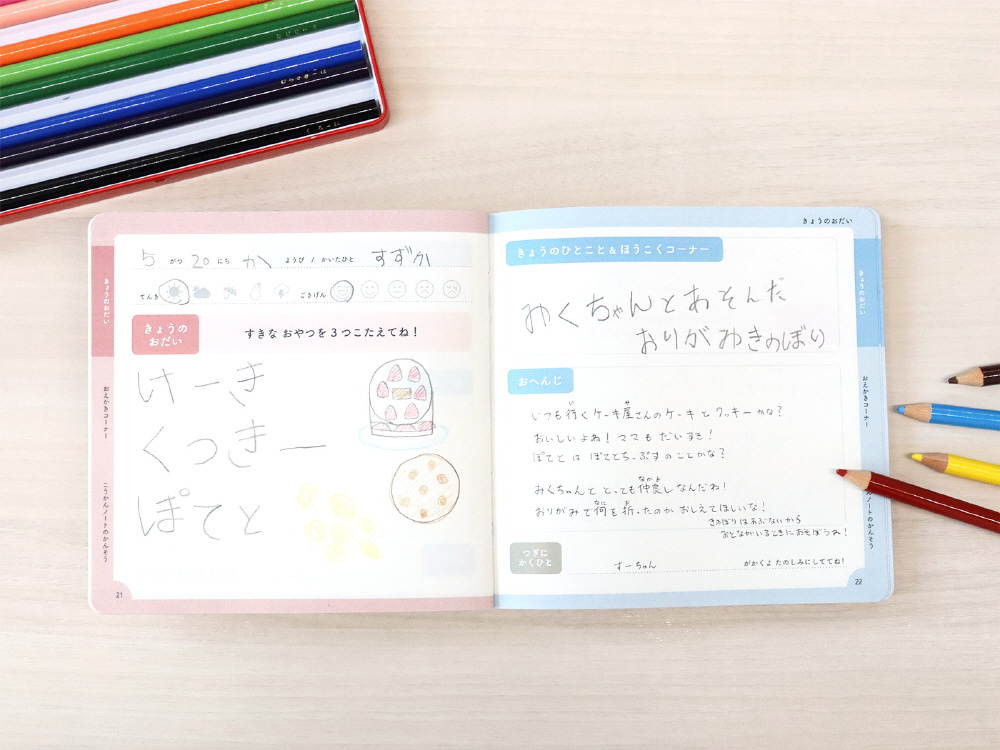 5 がつ 20 にち か ようび / かいたひと すずか
てんき ごきげん
きょうの
おだい
すきな おやつを 3つこたえてね!
けーき
くっきー
ぽてと
21
きょうのおだい
おえかきコーナー
こうかんノートのかんそう
きょうのおだい
きょうのひとこと&ほうこくコーナー
みくちゃんとあそんだ
おりがみきのぼり
おへんじ
いつも行くケーキ屋さんのケーキとクッキーかな?
おいしいよね!ママもだいすき!
ぽてとはぽてとちっぷすのことかな?
みくちゃんととっても仲良しなんだね!
おりがみで何を折ったのかおしえてほしいな!
きのぼりはあぶないから
おとながいるときにあそぼうね!
つぎに
かくひと
すーちゃん がかくよ たのしみにしててね!
22
きょうのおだい
おえかきコーナー
うかんノートのかんそう